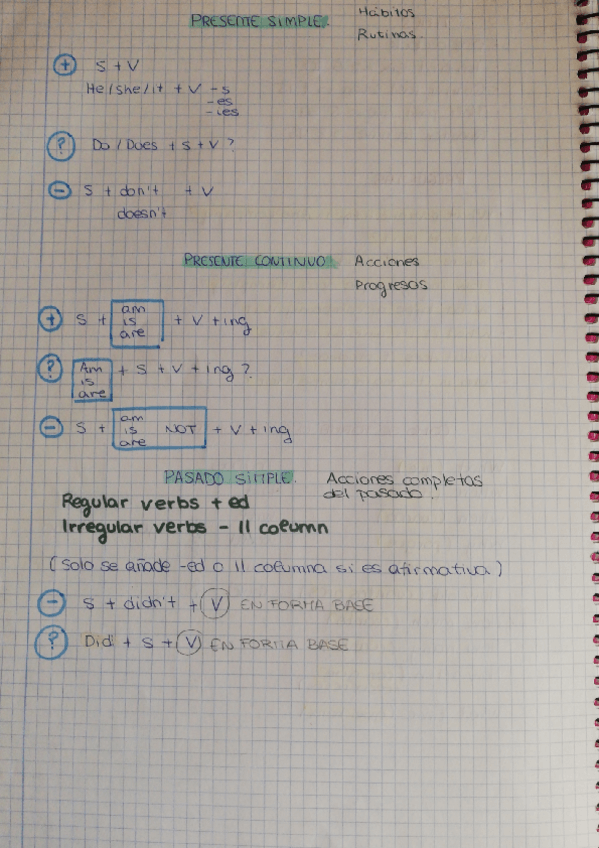 PRESENTE SIMPLE. Hábitos
Rutinas.
+ S + V
He/she/it + V -s
-es
-ies
? Do / Does + S + V ?
- S + don't + V
doesn't
PRESENTE CONTINUO Acciones
Progresos
+ S + am is are + V + ing
? Am is are + S + V + ing ?
- S + am is are NOT + V + ing
PASADO SIMPLE. Acciones completas
del pasado.
Regular verbs + ed
Irregular verbs - II column
(Solo se añade -ed o II columna si es afirmativa)
- S + didn't + V EN FORMA BASE
? Did + S + V EN FORMA BASE